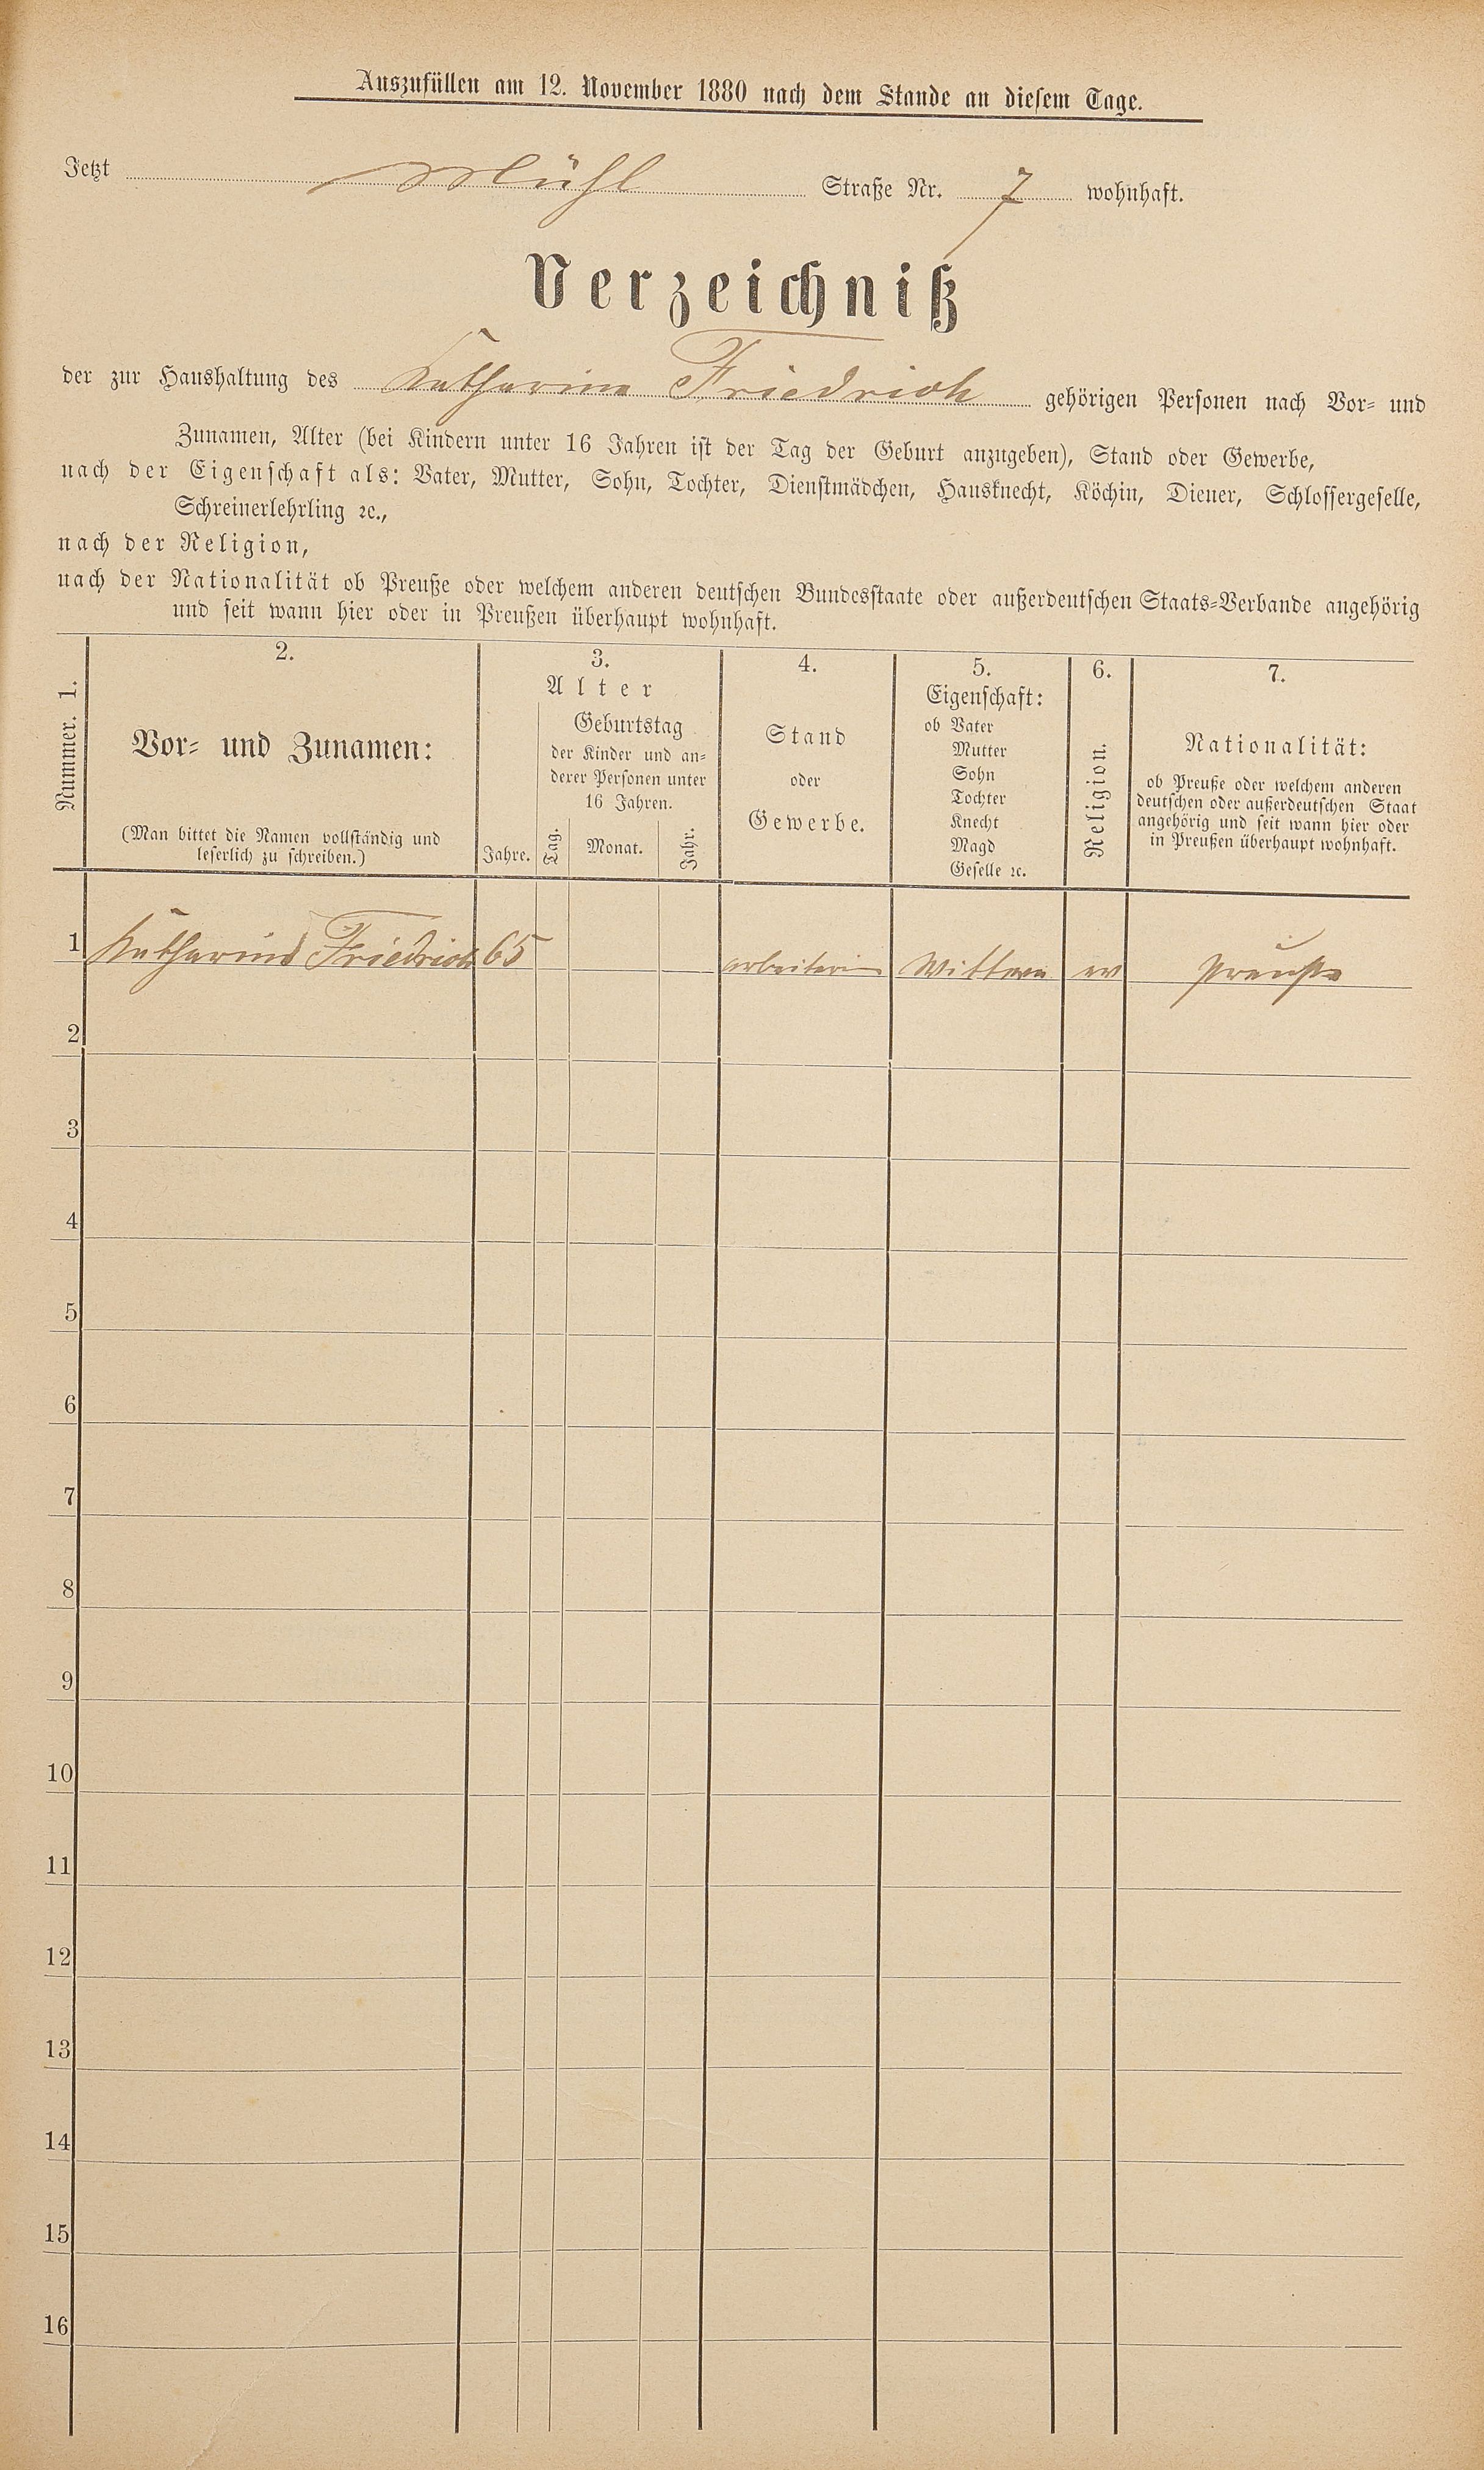 Auszufüllen am 12. November 1880 nach dem Stande an diesem Tage.
Jetzt Mühl Straße Nr. 7 wohnhaft.
Verzeichniß
der zur Haushaltung des Katharina Friedrich gehörigen Personen nach Vor- und
Zunamen, Alter (bei Kindern unter 16 Jahren ist der Tag der Geburt anzugeben), Stand oder Gewerbe,
nach der Eigenschaft als: Vater, Mutter, Sohn, Tochter, Dienstmädchen, Hausknecht, Köchin, Diener, Schlossergeselle,
Schreinerlehrling ꝛc.,
nach der Religion,
nach der Nationalität ob Preuße oder welchem anderen deutschen Bundesstaate oder außerdeutschen Staats-Verbande angehörig
und seit wann hier oder in Preußen überhaupt wohnhaft.
Nummer. 1.
2.
Vor- und Zunamen:
(Man bittet die Namen vollständig und
leserlich zu schreiben.)
3.
Alter
Jahre.
Geburtstag
der Kinder und an-
derer Personen unter
16 Jahren.
Tag.
Monat.
Jahr.
4.
Stand
oder
Gewerbe.
5.
Eigenschaft:
ob Vater
Mutter
Sohn
Tochter
Knecht
Magd
Geselle ꝛc.
6.
Religion.
7.
Nationalität:
ob Preuße oder welchem anderen
deutschen oder außerdeutschen Staat
angehörig und seit wann hier oder
in Preußen überhaupt wohnhaft.
1 Katharina Friedrich 65 arbeiterin Wittwe ev Preuße
2
3
4
5
6
7
8
9
10
11
12
13
14
15
16